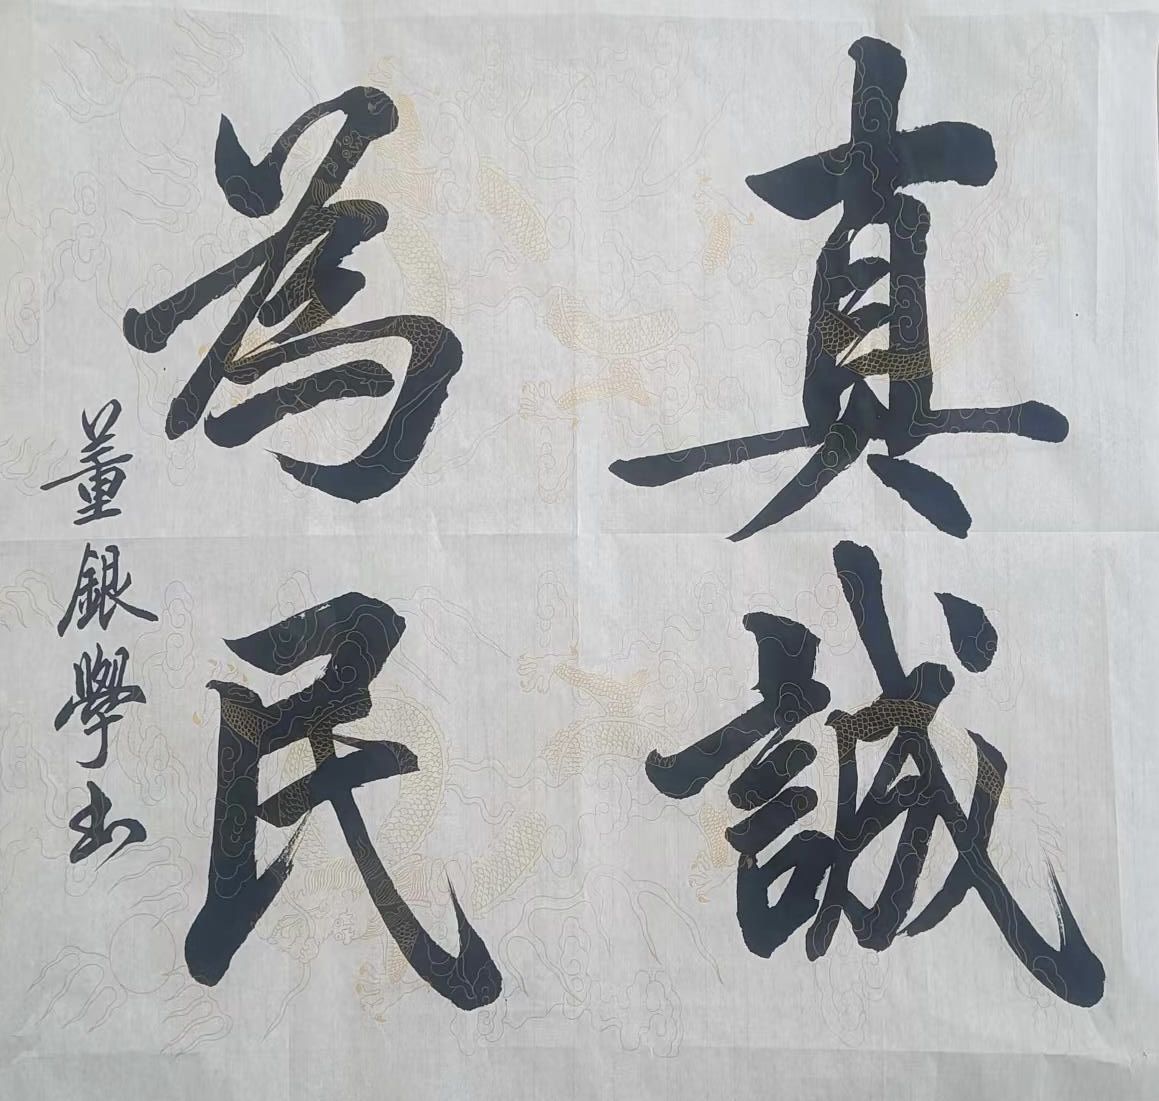 真誠
為民
董銀學書